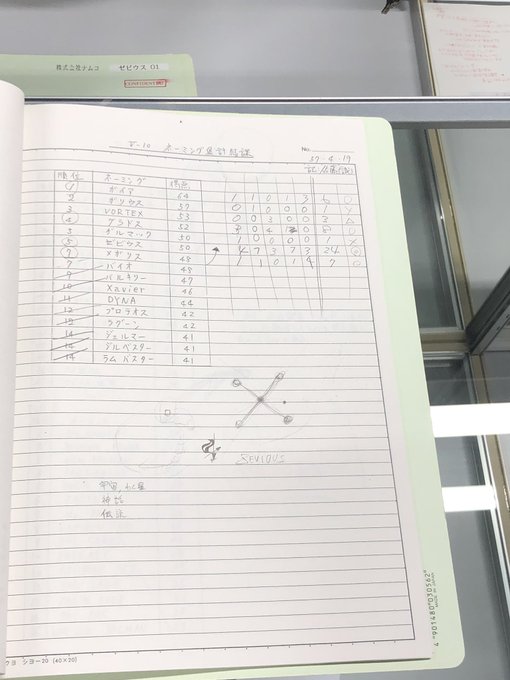 株式会社ナムコ ゼビウス 01
CONFIDENTIAL
V-10 ネーミング集計結果
No.
57-4-19
順位 ネーミング 得点
1 ボイア 64
2 ボリウス 57
3 VORTEX 53
4 グラドス 52
5 ボルマック 50
5 ゼビウス 50
7 メボリス 48
7 バイオ 48
9 バルキリー 47
10 Xavier 46
11 DYNA 44
12 プロテオス 42
12 ラグーン 42
14 ジェルマー 41
14 シルベスター 41
14 ラムバスター 41
1 1 0 1 3 6 ○
0 1 0 0 0
0 0 3 0 0 3 △
3 0 4 1 0 8 ○
1 0 0 0 0 1 ×
4 7 3 7 3 24 ◎
1 1 0 1 4 7 ○
XEVIOUS
宇宙, わく星
神話
伝染
コクヨ ショー20 (40×20)
4 901480 030562
MADE IN JAPAN